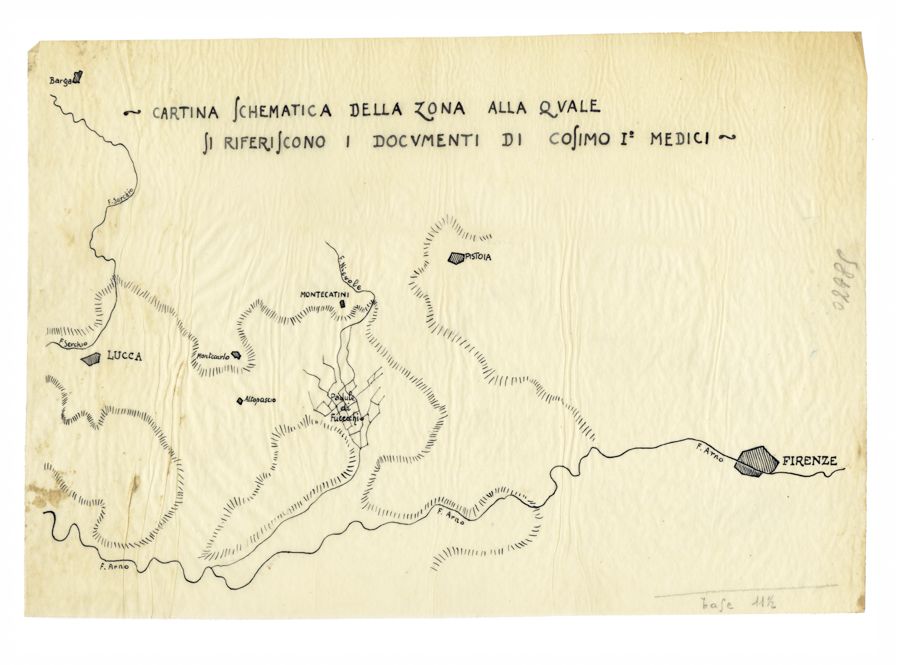 Barga
~ CARTINA SCHEMATICA DELLA ZONA ALLA QVALE
SI RIFERISCONO I DOCVMENTI DI COSIMO Iº MEDICI ~
F. Serchio
PISTOIA
F. Nievole
MONTECATINI
58820
F. Serchio
LUCCA
Montecarlo
Altopascio
Padule
di
Fucecchio
F. Arno
FIRENZE
F. Arno
F. Arno
base 11½